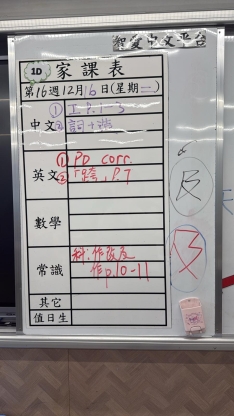 智愛中文平台
1D 家課表
第16週12月16日(星期二)
中文 ① 工.P.1-3
② 詞+
英文 ① PD corr.
② 「跨」, P.7
數學
常識 科:作改反
作p.10-11
其它
值日生
反